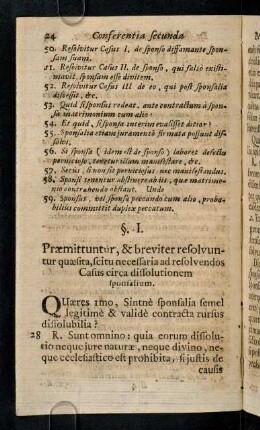 24 Conferentia secunda
50. Resolvitur Casus I. de sponso diffamante sponsam suam.
51. Resolvitur Casus II. de sponso, qui falsò existimavit sponsam esse divitem.
52. Resolvitur Casus III de eo, qui post sponsalia
53. Quid si sponsus redeat, ante contractum à sponsa matrimonium cum alio?
54. Et quid, si sponsa interim evasisset ditior?
55. Sponsalia etiam juramentò firmata possunt dissolvi.
56. Si sponsa (idem est de sponso) laboret defectu pernicioso, tenetur illum manifestare, &c.
57. Secus, si non sit perniciosus nec manifestandus.
58. Sponsi tenentur abstinere ab iis, quæ matrimonio contrahendo obstant. Unde
59. Sponsus, vel sponsa peccando cum alio, probabilius committit duplex peccatum.
§. I.
Præmittuntur, & breviter resolvuntur quæsita, scitu necessaria ad resolvendos
Casus circa dissolutionem
sponsalium.
QUæres 1mo, Sintnè sponsalia semel
legitimè & validè contracta rursus
dissolubilia?
28 R. Sunt omnino: quia eorum dissolutio neque juri naturæ, neque divino, neque ecclesiastico est prohibita, si justis de
causis